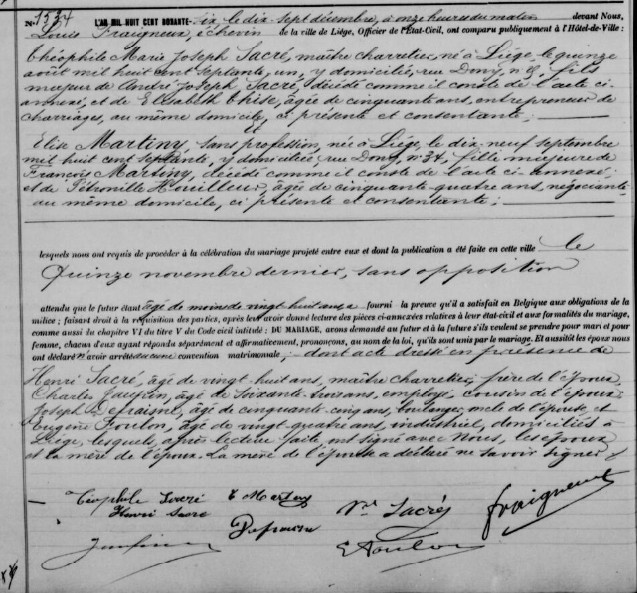 N. 1534 L'AN MIL HUIT CENT NONANTE-six, le dix sept décembre, à onze heures du matin devant Nous,
Louis Fraigneux, échevin de la ville de Liége, Officier de l'État-Civil, ont comparu publiquement à l'Hôtel-de-Ville:
Théophile Marie Joseph Sacré, maître charretier, né à Liége le quinze
août mil huit cent septante, un, y domicilié, rue Dony, n° 8, fils
majeur de André Joseph Sacré, décédé comme il conste de l'acte ci-
annexé, et de Elisabeth Thise, âgée de cinquante ans, entrepreneur de
charriages, au même domicile, ci présente et consentante;
et
Elise Martiny, sans profession, née à Liége, le dix-neuf septembre
mil huit cent septante, y domiciliée, rue Dony, n° 34, fille majeure de
François Martiny, décédé comme il conste de l'acte ci-annexé;
et de Pétronille Houilleux, âgée de cinquante-quatre ans, négociante,
au même domicile, ci présente et consentante;
lesquels nous ont requis de procéder à la célébration du mariage projeté entre eux et dont la publication a été faite en cette ville le
Quinze novembre dernier, sans opposition
attendu que le futur étant âgé de moins de vingt huit ans a fourni la preuve qu'il a satisfait en Belgique aux obligations de la
milice; faisant droit à la réquisition des parties, après leur avoir donné lecture des pièces ci-annexées relatives à leur état-civil et aux formalités du mariage,
comme aussi du chapitre VI du titre V du Code civil intitulé: DU MARIAGE, avons demandé au futur et à la future s'ils veulent se prendre pour mari et pour
femme, chacun d'eux ayant répondu séparément et affirmativement, prononçons, au nom de la loi, qu'ils sont unis par le mariage. Et aussitôt les époux nous
ont déclaré n'avoir arrêté aucune convention matrimoniale; dont acte dressé en présence de
Henri Sacré, âgé de vingt huit ans, maître charretier, frère de l'époux,
Charles, âgé de soixante ans, employé, cousin de l'époux,
Joseph Defraisne, âgé de cinquante-cinq ans, boulanger, oncle de l'épouse, et
Eugène Foulon, âgé de vingt-quatre ans, industriel, domiciliés à
Liége, lesquels, après lecture faite, ont signé avec Nous, les époux
et la mère de l'époux. La mère de l'épouse a déclaré ne savoir signer
Théophile Sacré E Martiny Vve Sacré Fraigneux
Henri Sacré Defraisne
E Foulon